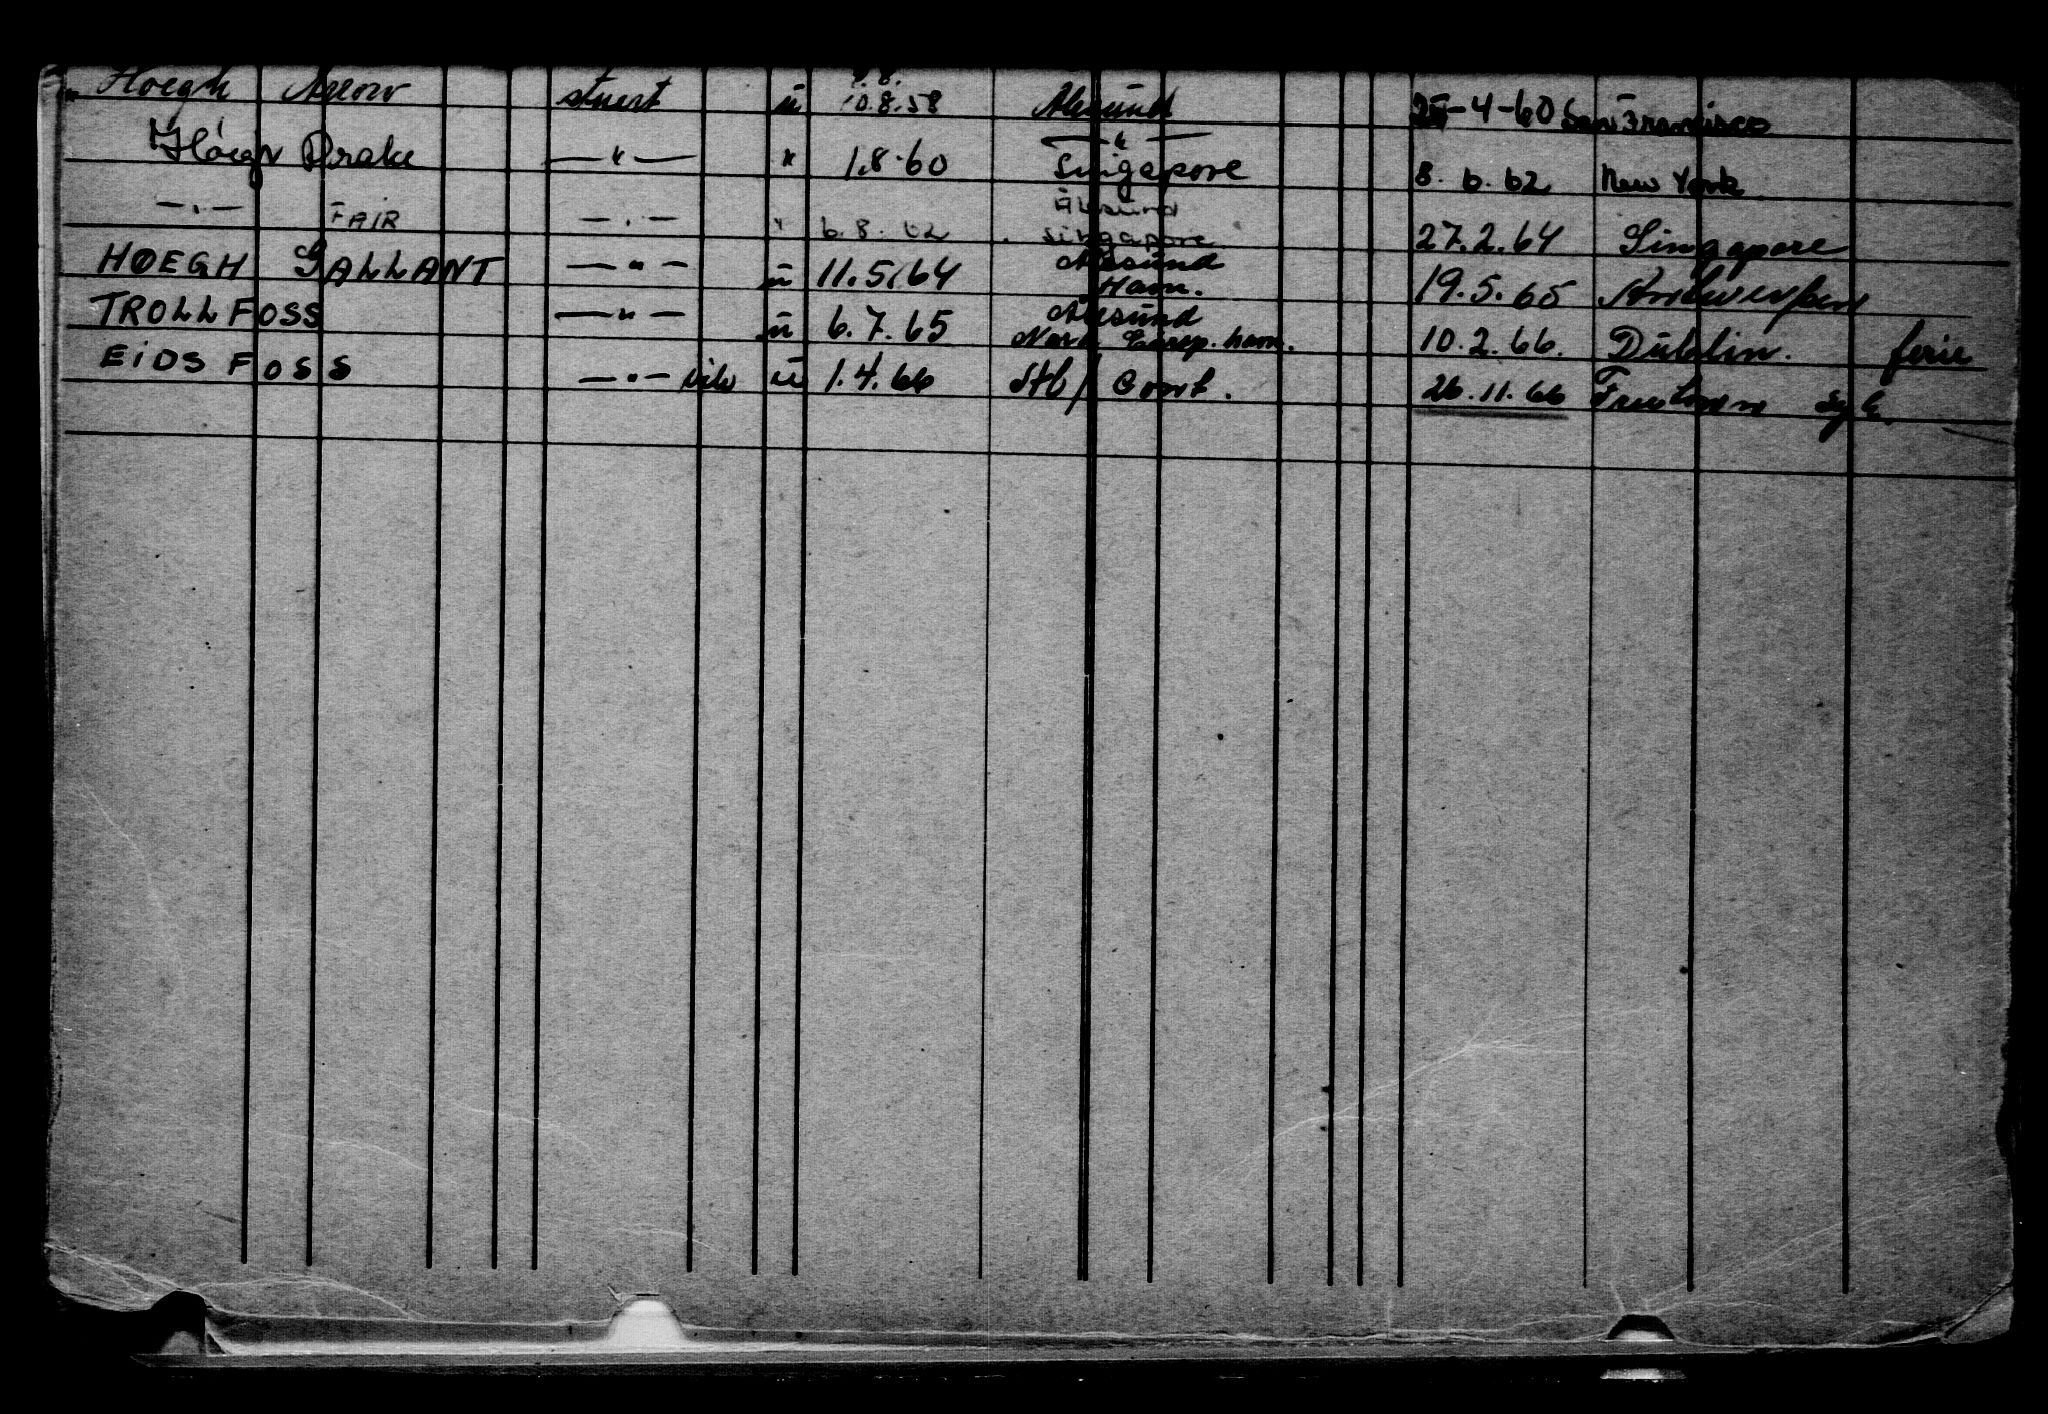 Høegh Arrow stuert ü 10.8.58 Ålesund -4-60 San Francisco
Høegh Drake —"— " 1.8.60 —"— Singapore 8.6.62 New York
—"— FAIR —"— " 6.8.62 Ålesund Singapore 27.2.64 Singapore
HØEGH GALLANT —"— ü 11.5.64 Ålesund Ham. 19.5.65 Antwerpen
TROLLFOSS —"— ü 6.7.65 Ålesund Nord Europ. ham. 10.2.66. Dublin. ferie
EIDSFOSS —"— vik ü 1.4.66 Stb/Cont. 26.11.66 Freetown syk